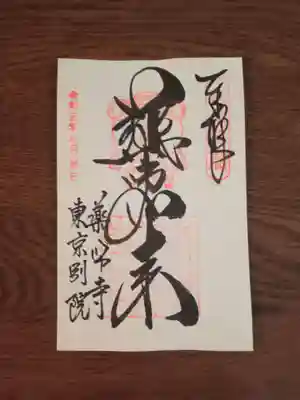 奉拝
薬師如来
薬師寺
東京別院